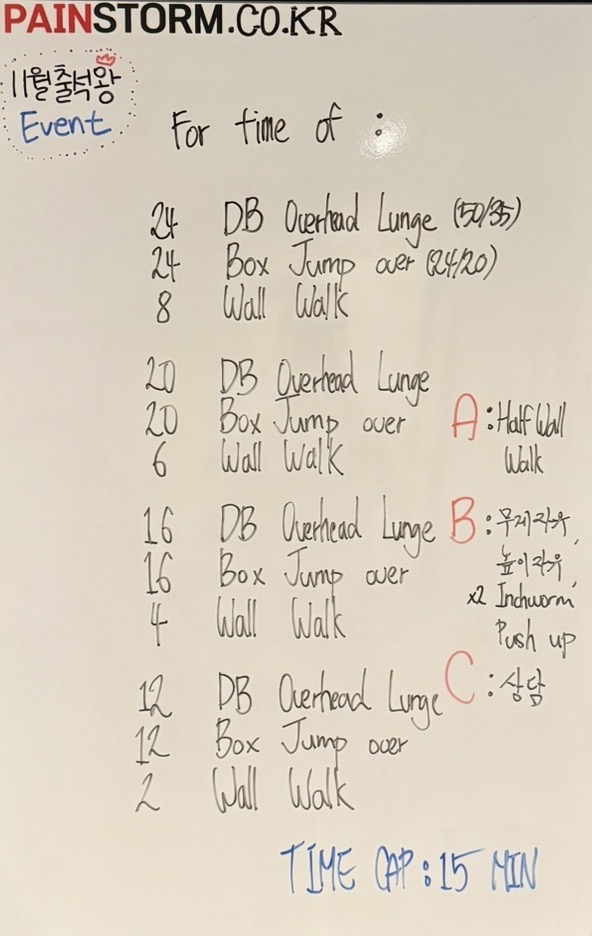 PAINSTORM.CO.KR
11월출석왕
Event
For time of :
24 DB Overhead Lunge (50/35)
24 Box Jump over (24/20)
8 Wall Walk
20 DB Overhead Lunge
20 Box Jump over
6 Wall Walk
A : Half Wall
Walk
16 DB Overhead Lunge
16 Box Jump over
4 Wall Walk
B : 무게자유,
높이자유,
x2 Inchworm
Push up
12 DB Overhead Lunge
12 Box Jump over
2 Wall Walk
C : 상담
TIME CAP : 15 MIN